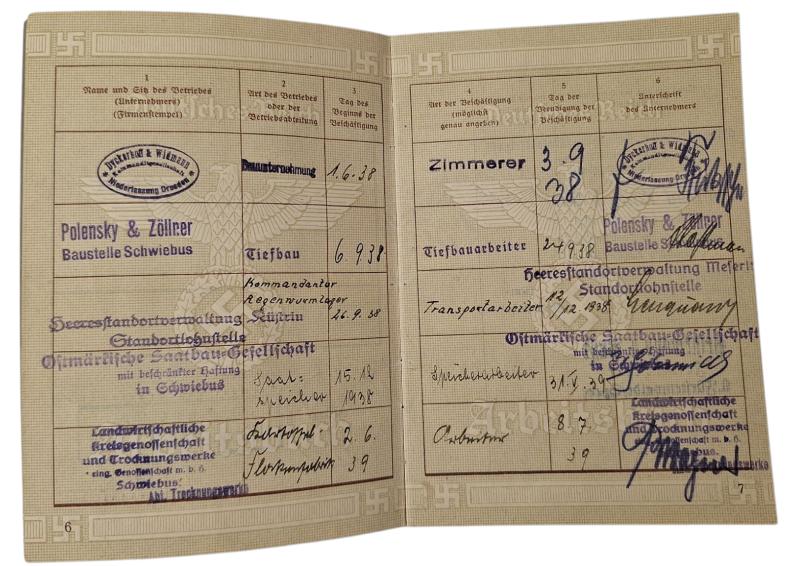 1
Name und Sitz des Betriebes
(Unternehmers)
(Firmenstempel)
2
Art des Betriebes
oder der
Betriebsabteilung
3
Tag des
Beginns der
Beschäftigung
Dyckerhoff & Widmann
Kommanditgesellschaft
Niederlassung Dresden
Bauunternehmung
1.6.38
Polensky & Zöllner
Baustelle Schwiebus
Tiefbau
6.9.38
Heeresstandortverwaltung
Standortlohnstelle
Kommandantur
Regenwurmlager
Küstrin
26.9.38
Ostmärkische Saatbau-Gesellschaft
mit beschränkter Haftung
in Schwiebus
Saat-
speicher
15.12
1938
Landwirtschaftliche
Kreisgenossenschaft
und Trocknungswerke
eing. Genossenschaft m. b. H.
Schwiebus
Abt. Trocknungswerke
Kartoffel-
Flockenfabrik
2.6.
39
6
4
Art der Beschäftigung
(möglichst
genau angeben)
5
Tag der
Beendigung der
Beschäftigung
6
Unterschrift
des Unternehmers
Zimmerer
3.9
38
Dyckerhoff & Widmann
Kommanditgesellschaft
Niederlassung Dresden
Tiefbauarbeiter
24.9.38
Polensky & Zöllner
Baustelle
Heeresstandortverwaltung Meserit
Standortlohnstelle
Transportarbeiter
12/12 1938
Ostmärkische Saatbau-Gesellschaft
mit beschränkter Haftung
in Schwiebus
Speicherarbeiter
31.V.39
Landwirtschaftliche
Kreisgenossenschaft
und Trocknungswerke
Arbeiter
8.7.
39
7